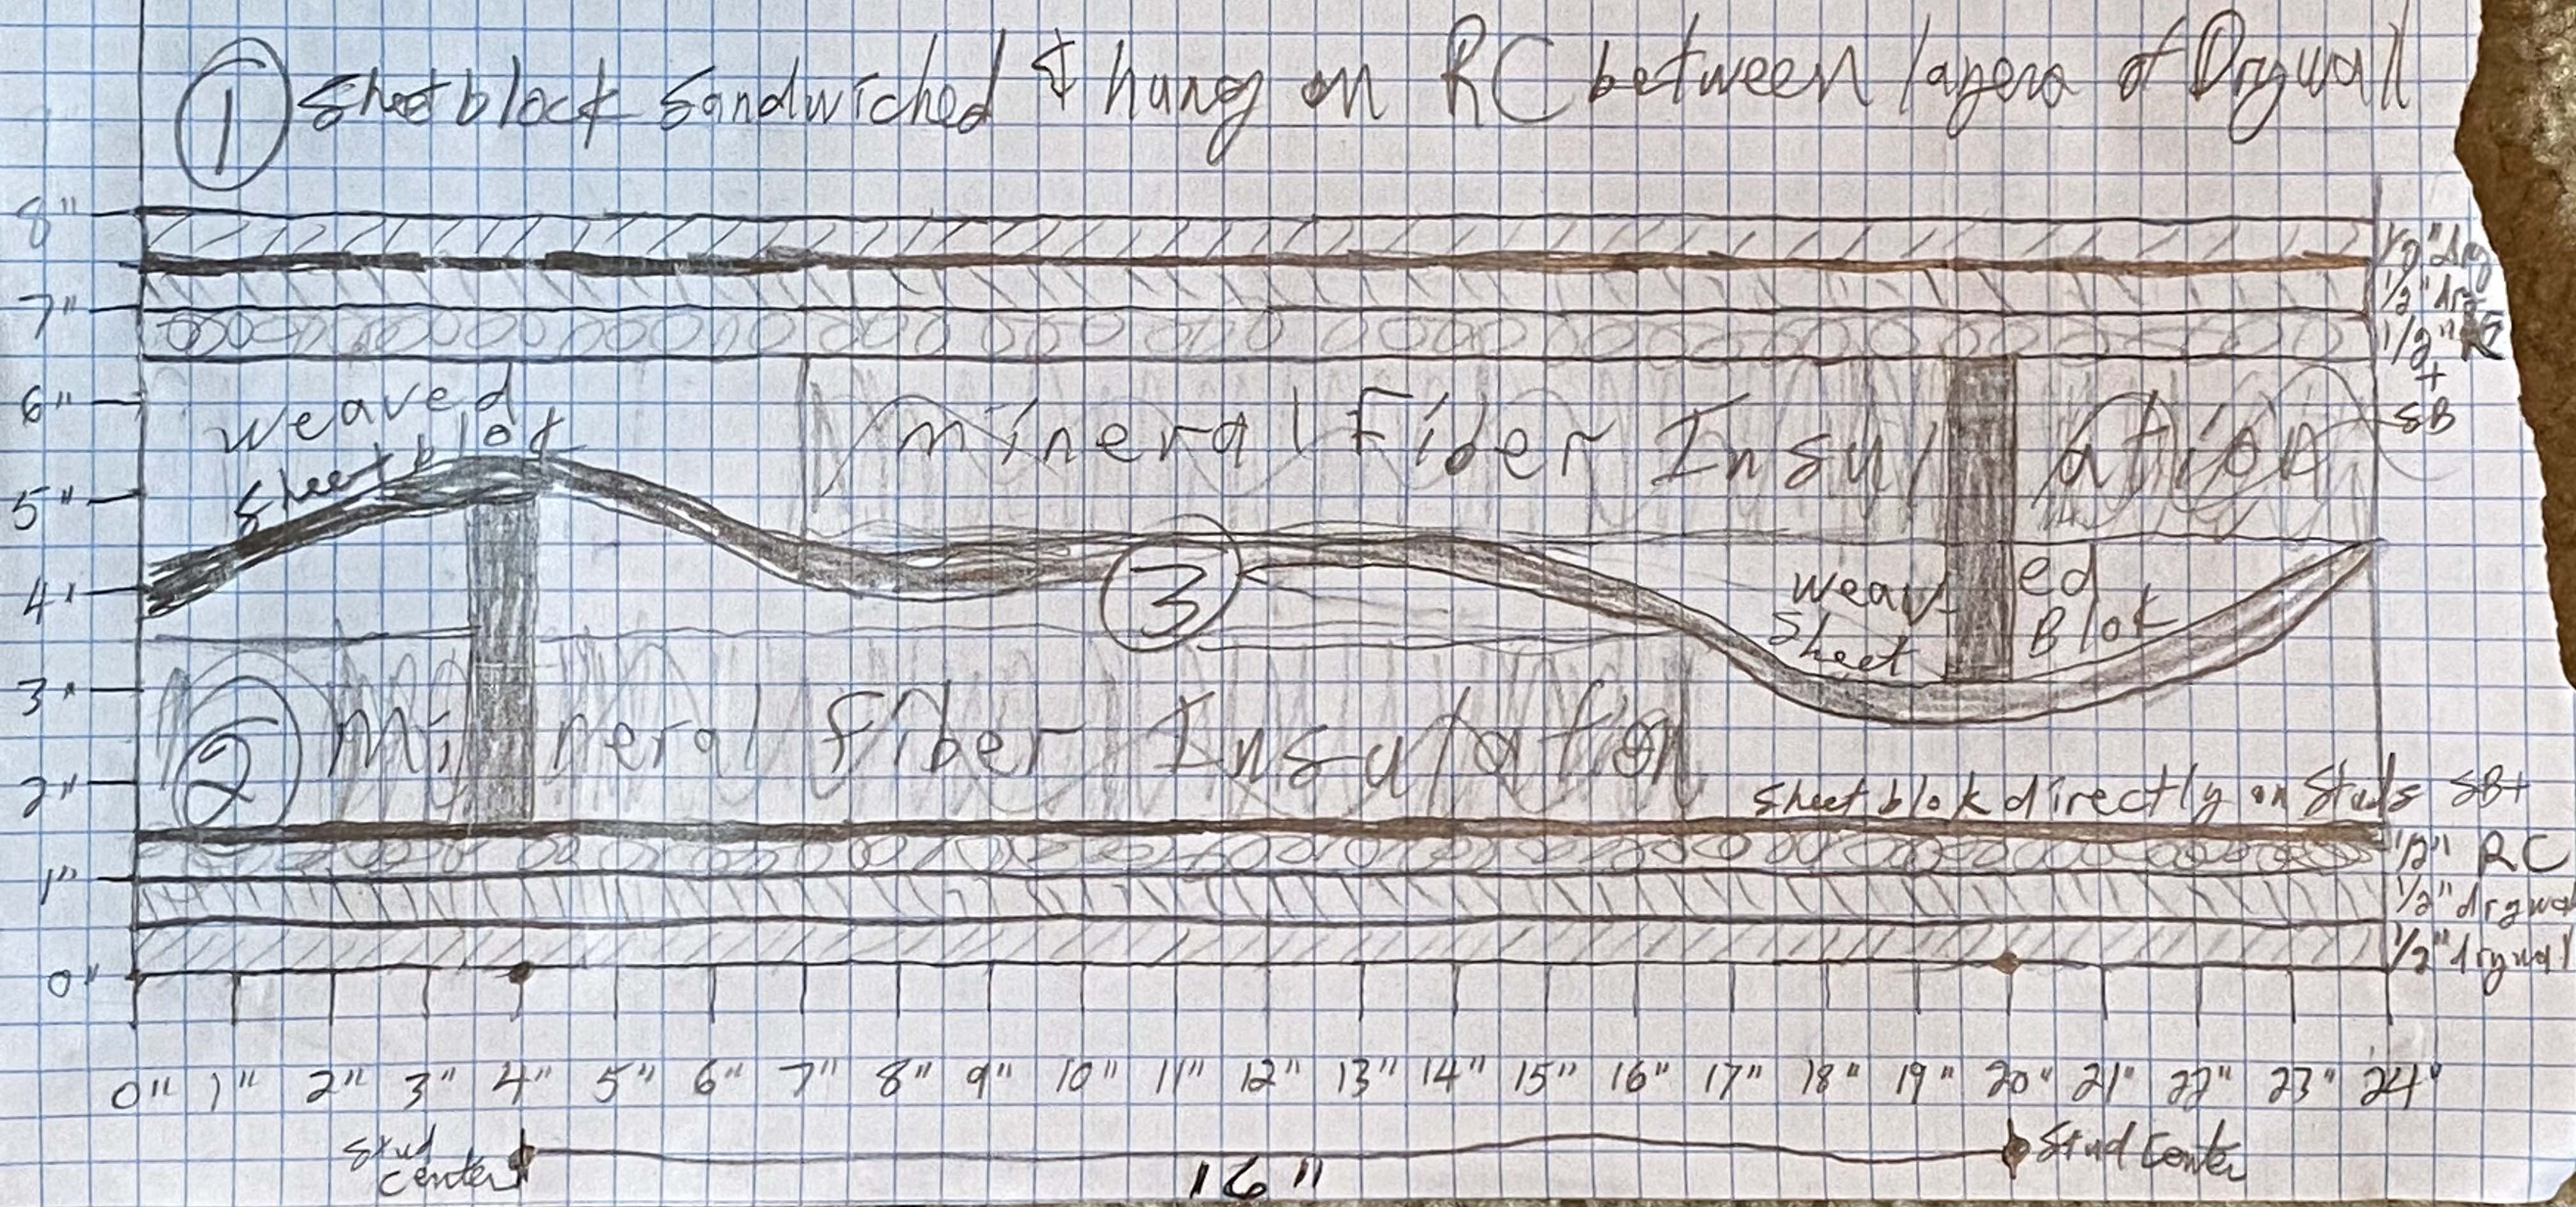 ① Sheetblock Sandwiched & hung on RC between layers of Drywall
8"
1/2" dry
1/2" dr
7"
1/2" RC
+
SB
6"
weaved
sheetblok
Mineral Fiber Insulation
5"
③
4"
weaved
Sheet Blok
3"
② Mineral Fiber Insulation
2"
Sheetblok directly on Studs SB+
1/2" RC
1"
1/2" drywal
1/2" drywall
0"
0" 1" 2" 3" 4" 5" 6" 7" 8" 9" 10" 11" 12" 13" 14" 15" 16" 17" 18" 19" 20" 21" 22" 23" 24"
Stud center
16"
Stud Center